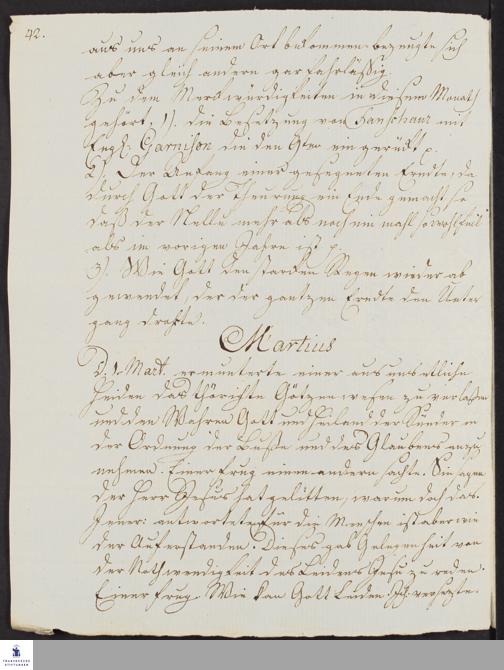 42.
aus uns an seinem Ort bekommen bezeugte sich
aber gleich andern gar fahrläßig.
Zu den Merckwürdigkeiten in diesem Monath
gehört, 1). die Besetzung von Tanschaur mit
Engl. Garnison die den 9ten eingerückt p.
2). Der Anfang einer gesegneten Erndte, da
durch Gott der Theurung ein Ende gemacht so
daß der Nelli mehr als noch ein mahl so wohlfeil
als im vorigen Jahre ist p.
3). Wie Gott den starcken Regen wieder ab
gewendet, der der gantzen Erndte den Unter
gang drohte.
Martius
D. 1. Mart. ermunterte einer aus uns etliche
Heiden das thörichte Götzenwesen zu verlaßen
und den Wahren Gott und Heiland der Sünder in
der Ordnung der Buße und des Glaubens anzu
nehmen. Einer frug einen andern sachte. Sie sagen
der Herr Jesus hat gelitten, warum doch das.
Jener: antwortete für die Menschen ist aber wie
der Auferstanden. Dieses gab Gelegenheit von
der Nothwendigkeit des Leidens Jesu zu reden.
Einer frug. Wie kan Gott Leiden. Ich: versezte.
FRANCKESCHE
STIFTUNGEN